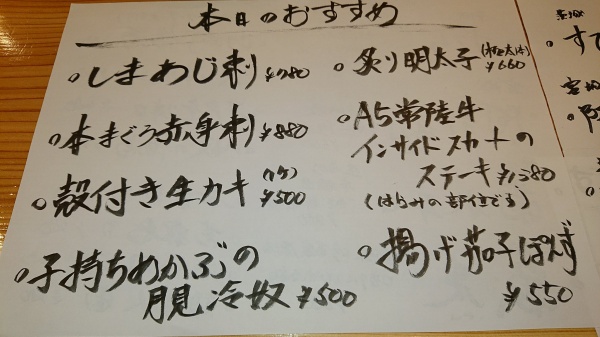 本日のおすすめ
しまあじ刺 ¥780
本まぐろ赤身刺 ¥880
殻付き生カキ (1ケ) ¥500
子持ちめかぶの
月見冷奴 ¥500
炙り明太子 (極太1本) ¥660
A5常陸牛
インサイドスカートの
ステーキ ¥1,380
(はらみの部位です)
揚げ茄子ぽんず
¥550